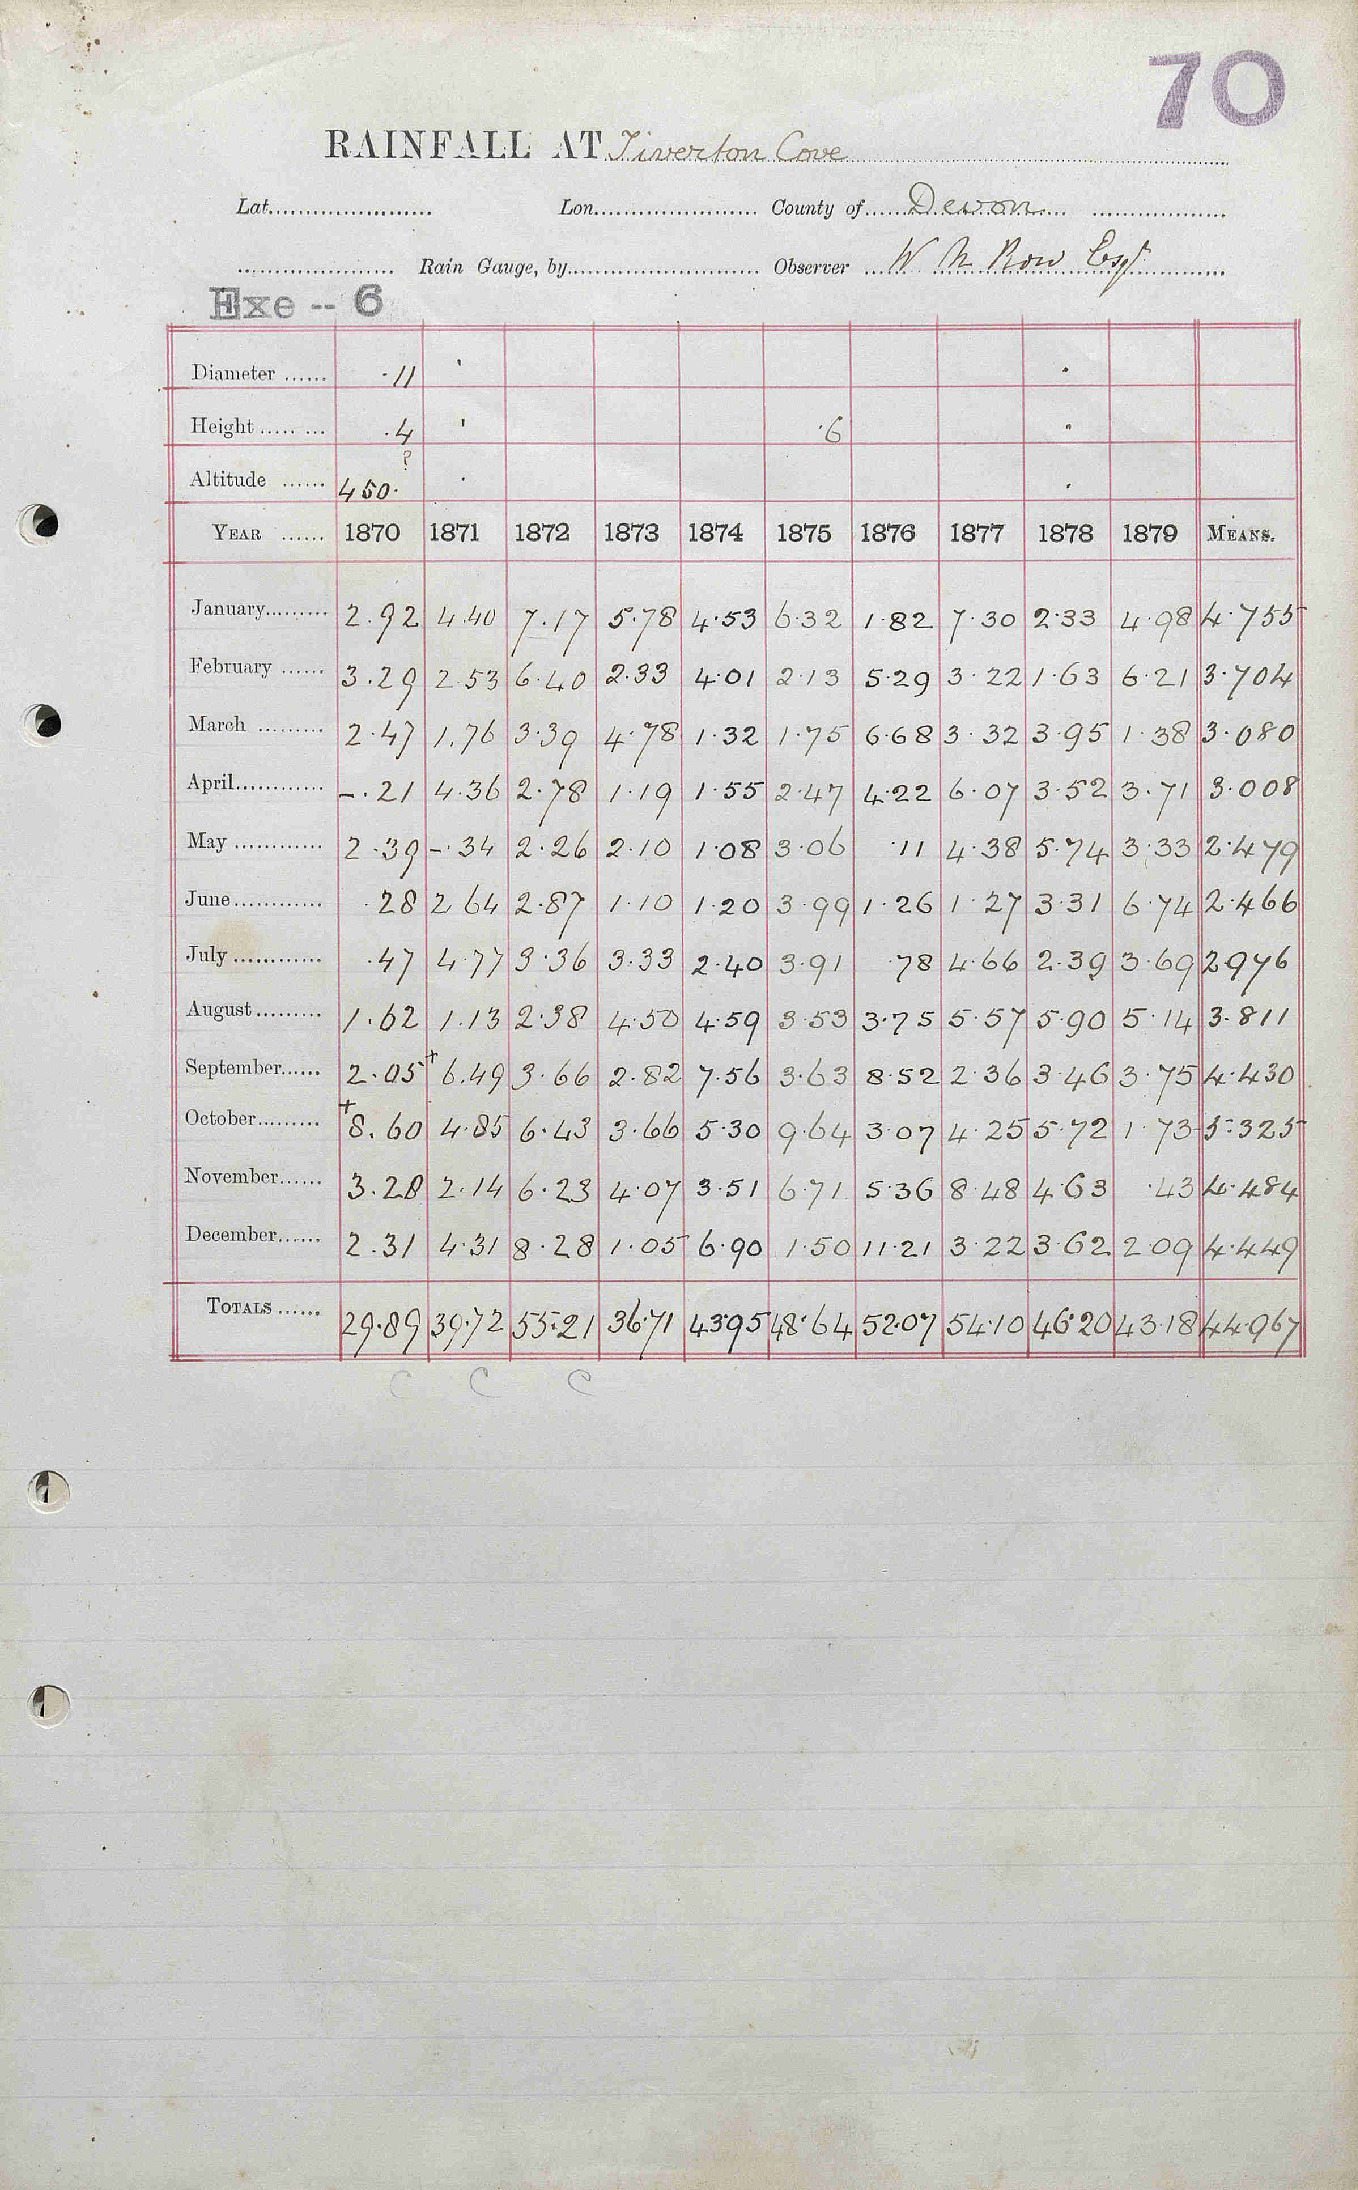 70
RAINFALL AT Tiverton Cove
Lat. Lon. County of Devon
Rain Gauge, by Observer W N Row Esqr
Exe -- 6
Diameter ...... ·11
Height ..... ... ·4 ·6
Altitude ...... 450· ?
YEAR ...... 1870 1871 1872 1873 1874 1875 1876 1877 1878 1879 MEANS.
January......... 2.92 4.40 7.17 5.78 4.53 6.32 1.82 7.30 2.33 4.98 4.755
February ...... 3.29 2.53 6.40 2.33 4.01 2.13 5.29 3.22 1.63 6.21 3.704
March ......... 2.47 1.76 3.39 4.78 1.32 1.75 6.68 3.32 3.95 1.38 3.080
April............ –.21 4.36 2.78 1.19 1.55 2.47 4.22 6.07 3.52 3.71 3.008
May ............ 2.39 –.34 2.26 2.10 1.08 3.06 .11 4.38 5.74 3.33 2.479
June............ .28 2.64 2.87 1.10 1.20 3.99 1.26 1.27 3.31 6.74 2.466
July ............ .47 4.77 3.36 3.33 2.40 3.91 .78 4.66 2.39 3.69 2976
August......... 1.62 1.13 2.38 4.50 4.59 3.53 3.75 5.57 5.90 5.14 3.811
September...... 2.05 +6.49 3.66 2.82 7.56 3.63 8.52 2.36 3.46 3.75 4.430
October......... +8.60 4.85 6.43 3.66 5.30 9.64 3.07 4.25 5.72 1.73 5.325
November...... 3.28 2.14 6.23 4.07 3.51 6.71 5.36 8.48 4.63 .43 4.484
December...... 2.31 4.31 8.28 1.05 6.90 1.50 11.21 3.22 3.62 2.09 4.449
TOTALS ...... 29.89 39.72 55.21 36.71 43.95 48.64 52.07 54.10 46.20 43.18 44.967
C C C